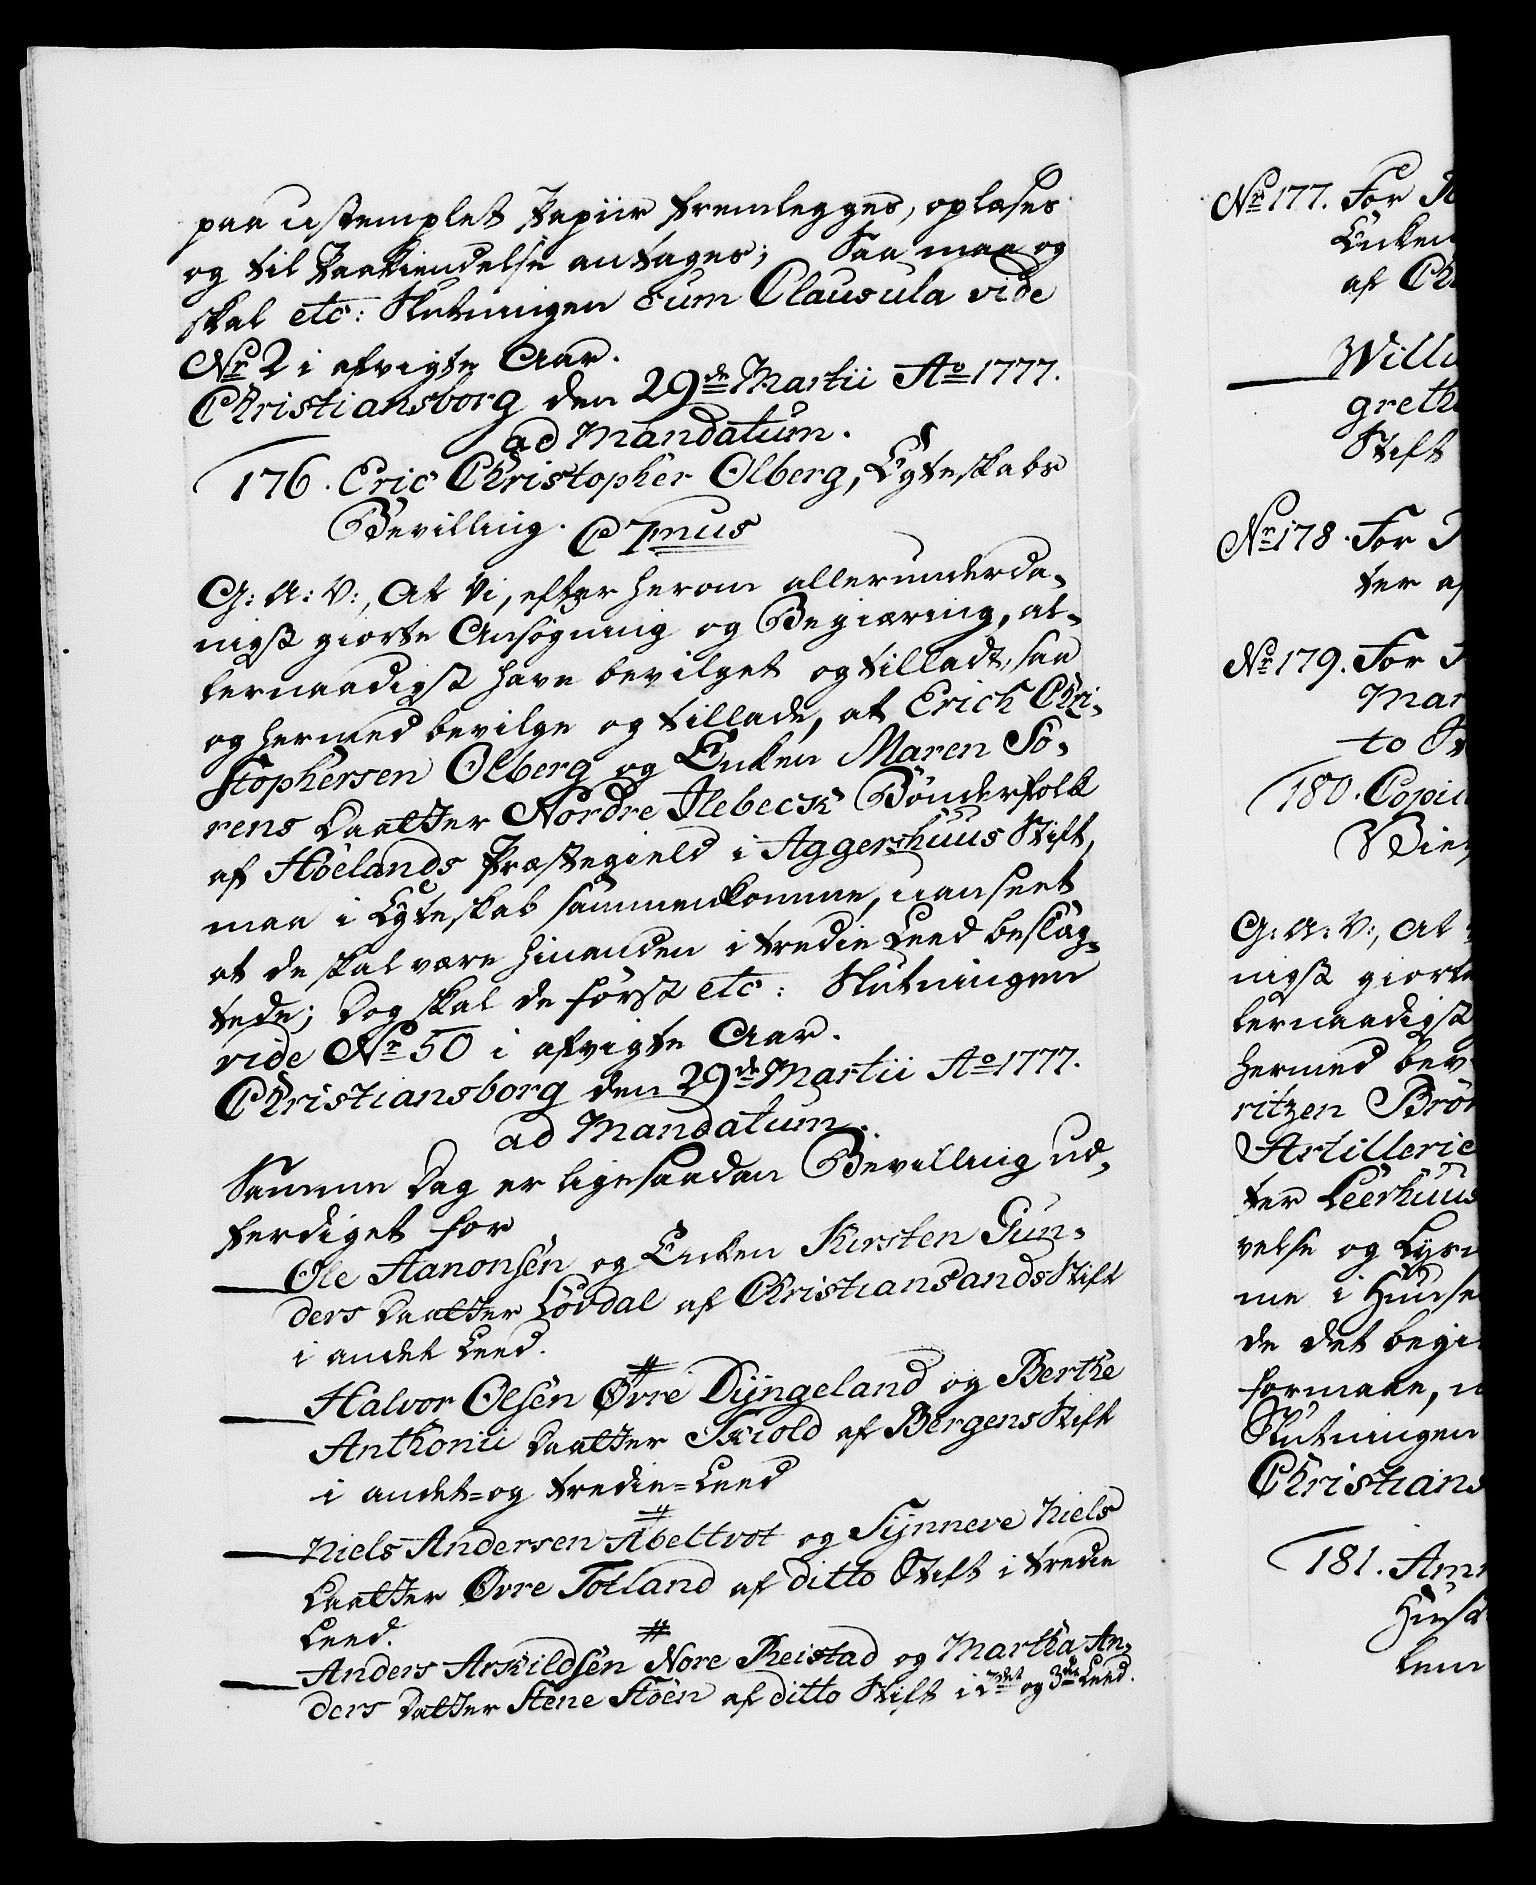 paa ustemplet Papiir fremlegges, oplæses
og til Paakiendelse antages; Saa maa og
skal etc: Slutningen cum Clausula vide
No. 2 i afvigte Aar.
Christiansborg den 29de Martii Ao 1777.
ad Mandatum.
176. Eric Christopher Olberg, Egteskabs
Bevilling. C 7mus
G: A: V:, At Vi, efter herom allerunderda-
nigst giorte Ansøgning og Begiæring, al-
lernaadigst have bevilget og tilladt, saa
og hermed bevilge og tillade, at Erich Chri-
stophersen Olberg og Enken Maren Sø-
rens Daatter Nordre Ilebeck Bønderfolk
af Høelands Præstegield i Aggershuus Stift,
maa i Egteskab sammenkomme, uanseet
at de skal være hinanden i tredie Leed beslæg-
tede; Dog skal de først etc: Slutningen
vide No. 50 i afvigte Aar.
Christiansborg den 29de Martii Ao 1777.
ad Mandatum.
Samme Dag er ligesaadan Bevilling ud-
ferdiget for
Ole Aanonsen og Enken Kirsten Gun-
ders Daatter Løvdal af Christiansands Stift
i andet Leed.
Halvor Olsen Øvre Dyngeland og Berthe
Anthonii Daatter Skiold af Bergens Stift
i andet= og tredie=Leed
Niels Andersen Abeltvot og Synneve Niels
Daatter Øvre Totland af ditto Stift i tredie
Leed.
Anders Arkildsen Nore Reistad og Martha An-
ders Datter Stene Støen af ditto Stift i 2det og 3die Leed.
No. 177. For
Enken
af
Stift
No. 178. For
ter af
No. 179. For
to
180.
G: A: V:, At
nigst giorte
lernaadigst
hermed
ritzen
Artillerie
ter Leerhuus
velse og
me i
de det
formaae,
Slutningen
Christians
181.